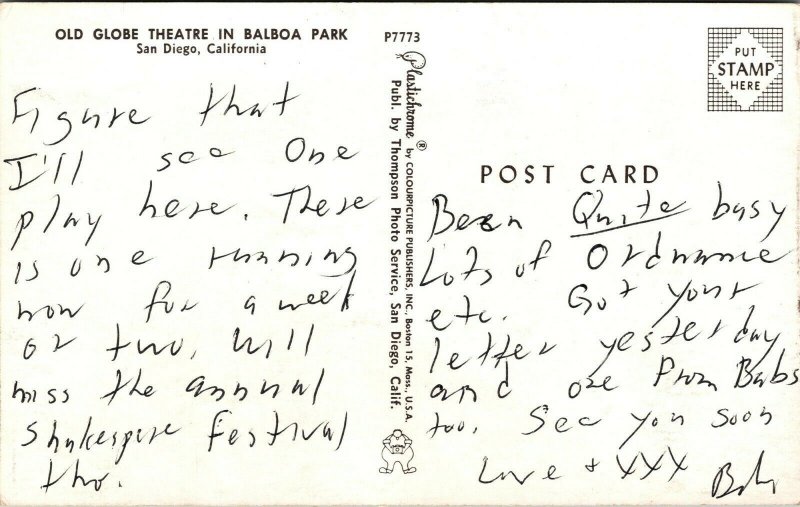 OLD GLOBE THEATRE IN BALBOA PARK
San Diego, California
P7773
Figure that
I'll see One
play here. There
is one running
now for a week
or two, will
miss the annual
Shakespire Festival
tho.
Plastichrome ® by COLOURPICTURE PUBLISHERS, INC., Boston 15, Mass., U.S.A.
Publ. by Thompson Photo Service, San Diego, Calif.
PUT
STAMP
HERE
POST CARD
Been Quite busy
Lots of Ordnance
etc. Got your
letter yesterday
and one From Babs
too. See you soon
Love + XXX Bob